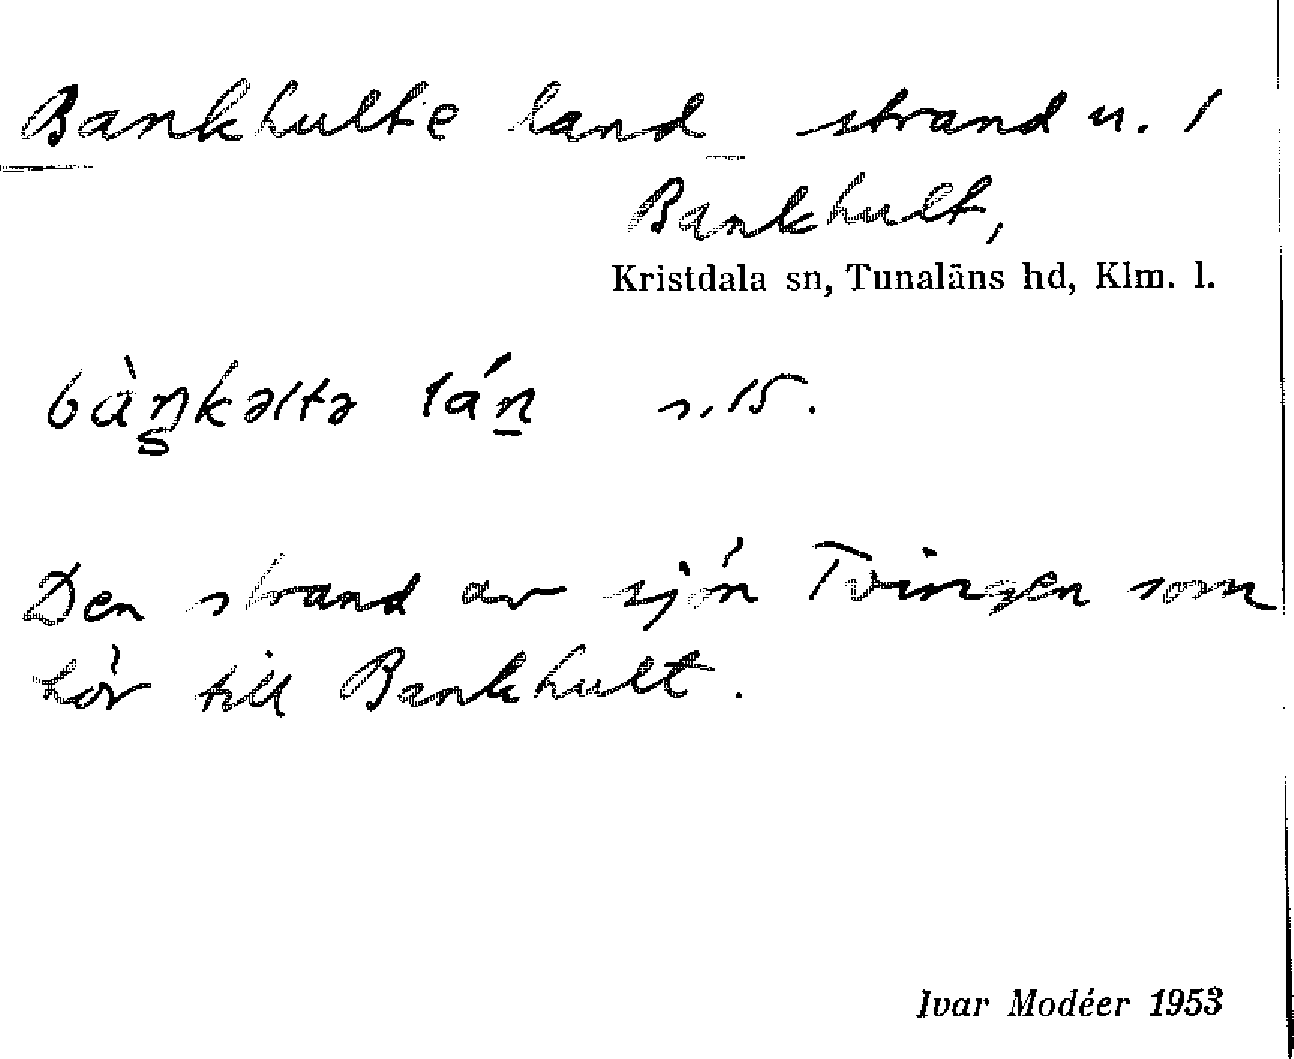 Bankhulte land strand u. 1
Bankhult,
Kristdala sn, Tunaläns hd, Klm. l.
bàŋkəltə lán s. 15.
Den strand av sjön Tvingen som
hör till Bankhult.
Ivar Modéer 1953